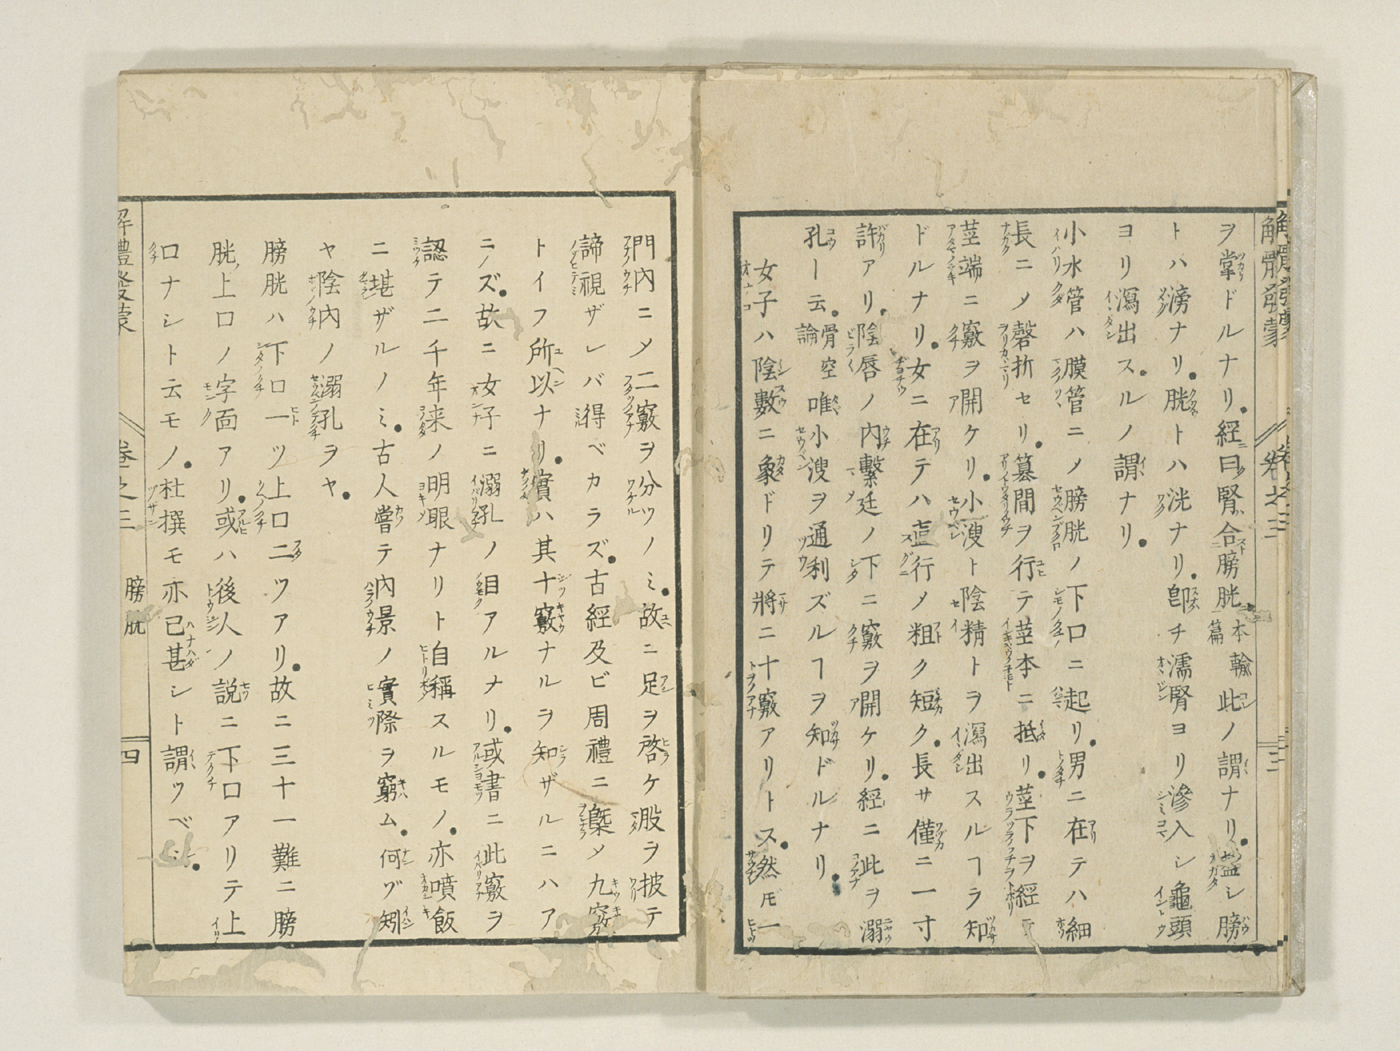 解體發蒙 卷之三 三
ヲ掌ドルナリ。経ニ曰ク腎ハ合ス膀胱ニ本輸篇此ノ謂ナリ。蓋シ膀
トハ滂ナリ。胱トハ洸ナリ。即チ濡腎ヨリ滲入シ龜頭
ヨリ瀉出スルノ謂ナリ。
小水管ハ膜管ニメ膀胱ノ下口ニ起リ。男ニ在テハ細
長ニメ磬折セリ。篡間ヲ行テ莖本ニ抵リ。莖下ヲ経テ
莖端ニ竅ヲ開ケリ。小溲ト陰精トヲ瀉出スルヿヲ知
ドルナリ。女ニ在テハ直行メ粗ク短ク。長サ僅ニ一寸
許アリ。陰唇ノ内繫廷ノ下ニ竅ヲ開ケリ。経ニ此ヲ溺
孔ト云。骨空論唯小溲ヲ通利ズルヿヲ知ドルナリ。
女子ハ陰數ニ象ドリテ將ニ十竅アリトス。然ドモ一
門内ニメ二竅ヲ分ツノミ。故ニ足ヲ啓ケ股ヲ披テ
諦視ザレバ得ベカラズ。古經及ビ周禮ニ槩メ九竅
トイフ所以ナリ。實ハ其十竅ナルヲ知ザルニハア
ニノズ。故ニ女子ニ溺孔ノ目アルナリ。或書ニ此竅ヲ
認テ二千年来ノ明眼ナリト自稱スルモノ。亦噴飯
ニ堪ザルノミ。古人嘗テ内景ノ實際ヲ窮ム。何ゾ矧
ヤ陰内ノ溺孔ヲヤ。
膀胱ハ下口一ツ上口二ツアリ。故ニ三十一難ニ膀
胱ノ上口ノ字面アリ。或ハ後人ノ説ニ下口アリテ上
口ナシト云モノ。杜撰モ亦已甚シト謂ツベシ。
解體發蒙 卷之三 膀胱 四